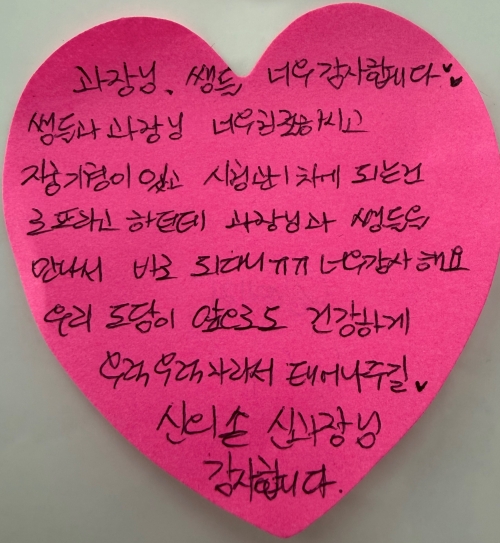 과장님, 쌤들 너무감사합니다
쌤들과 과장님 너무친절하시고
자궁기형이 있고 시험관1차에 되는건
로또라고 하던데 과장님과 쌤들을
만나서 바로 되다니ㅠㅠ 너무감사해요
우리 도담이 앞으로도 건강하게
무럭무럭자라서 태어나주길
신의손 신과장님
감사합니다.